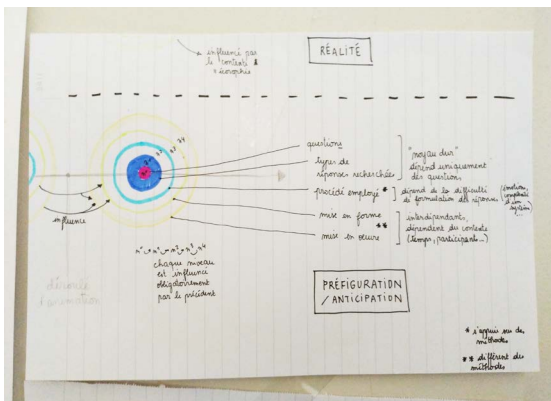 influencé par
le contexte &
RÉALITÉ
questions
types de
réponses recherchées
procédé employé *
mise en forme
**
mise en œuvre
"noyau dur"
dépend uniquement
des questions
dépend de la difficulté
de formulation des réponses
(émotion,
complexité
d'un
système
...)
interdépendants,
dépendent du contexte
(temps, participants...)
influence
n° n1 n2 n3 n4
chaque niveau
est influencé
obligatoirement
par le précédent
PRÉFIGURATION
/ANTICIPATION
* s'appuie sur des
méthodes
** diffèrent des
méthodes